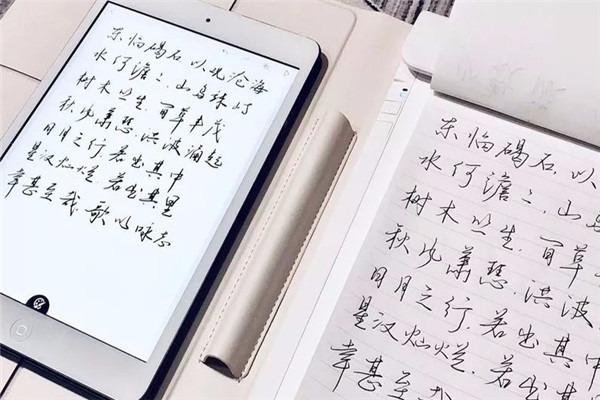 东临碣石,以观沧海
水何澹々,山岛竦峙
树木丛生,百草丰茂
秋风萧瑟,洪波涌起
日月之行,若出其中
星汉灿烂,若出其里
幸甚至哉,歌以咏志
东临碣石,以
水何澹々,山岛
树木丛生,百草
秋风萧瑟,洪波
日月之行,若出其中
星汉灿烂,若出
幸甚至哉